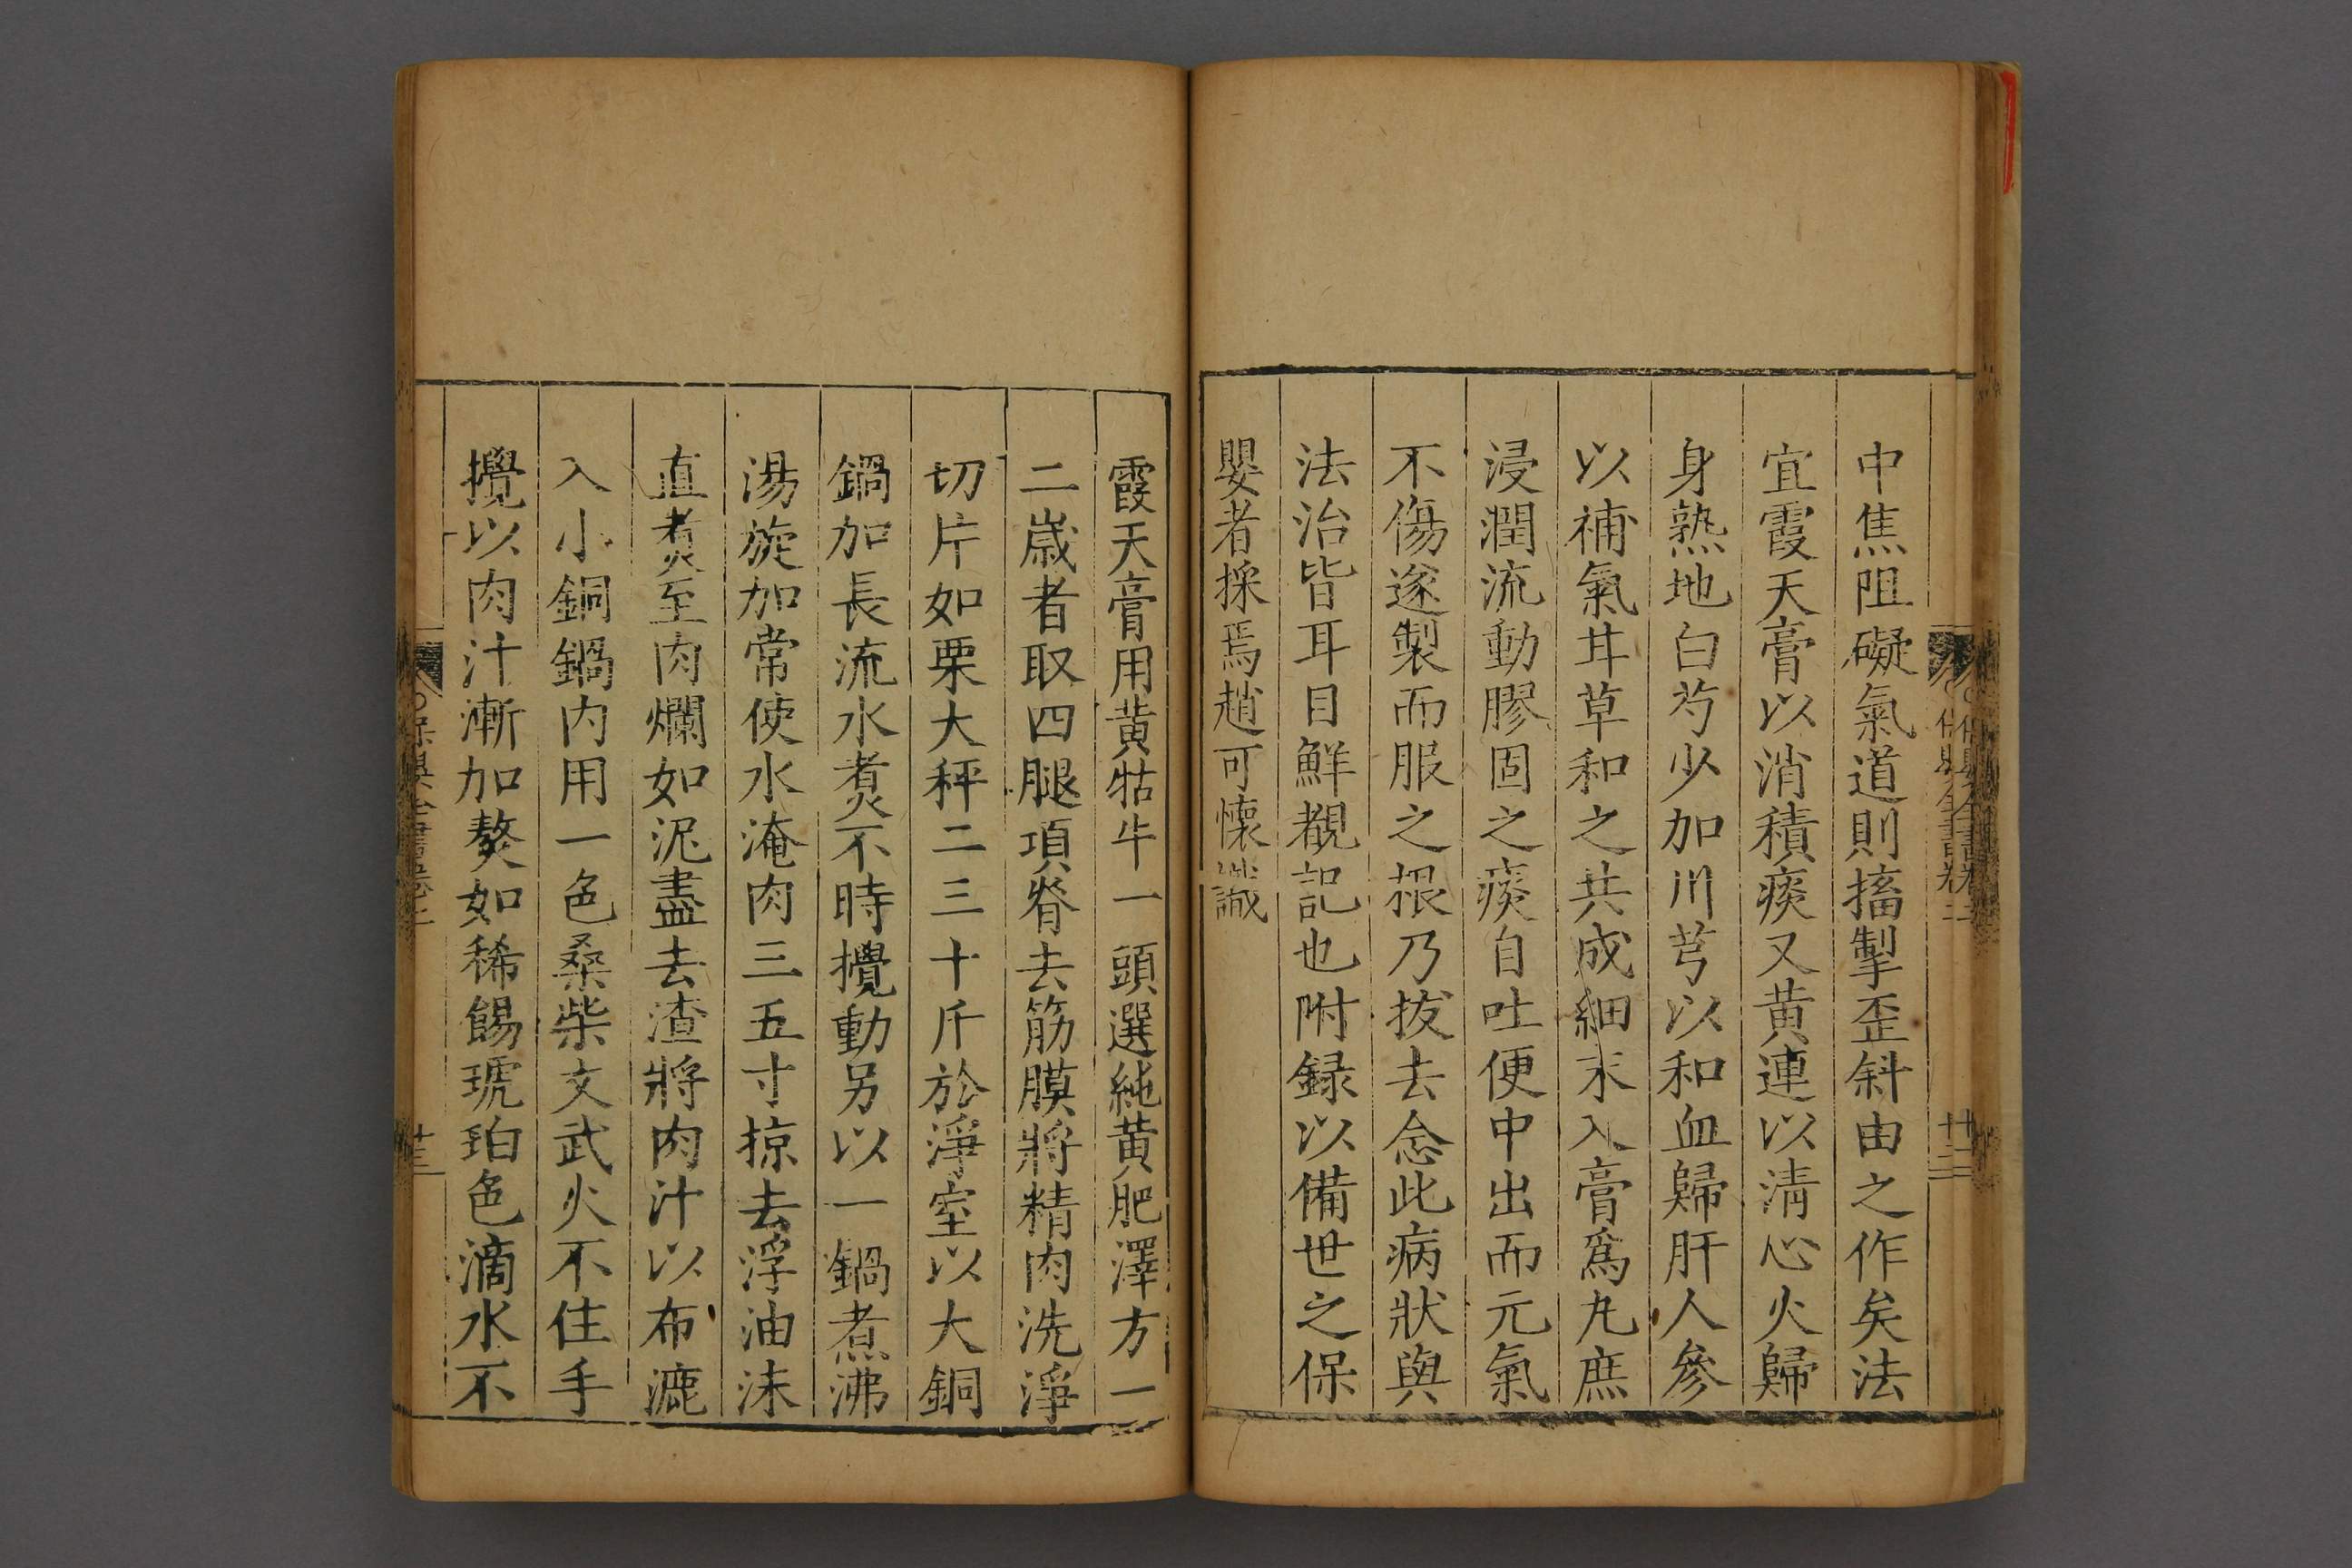 中焦阻礙氣道則搐掣歪斜由之作矣法
宜霞天膏以消積痰又黄連以淸心火歸
身熟地白芍少加川芎以和血歸肝人參
以補氣甘草和之共成細末入膏爲九庶
浸潤流動膠固之痰自吐便中出而元氣
不傷遂製而服之根乃拔去念此病狀與
法治皆耳目鮮覩記也附録以備世之保
嬰者採焉趙可懷識
霞天膏用黄牯牛一頭選純黄肥澤方一
二歲者取四腿項脊去筋膜將精肉洗淨
切片如栗大秤二三十斤於淨室以大銅
鍋加長流水煑不時攪動另以一鍋煮沸
湯旋加常使水淹肉三五寸掠去浮油沫
直煑至肉爛如泥盡去渣將肉汁以布漉
入小銅鍋内用一色桑柴文武火不住手
攪以肉汁漸加熬如稀餳琥珀色滴水不
保嬰全書卷二
廿三